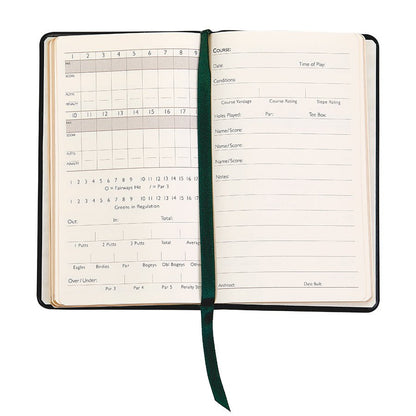 1 2 3 4 5 6 7 8 9
PAR
SCORE
PUTTS
PENALTY
10 11 12 13 14 15 16 17
PAR
SCORE
PUTTS
PENALTY
1 2 3 4 5 6 7 8 9 10 11 12 13 14 15 16 17
O = Fairways Hit / = Par 3
1 2 3 4 5 6 7 8 9 10 11 12 13 14 15 16 17
Greens in Regulation
Out: In: Total:
1 Putts 2 Putts 3 Putts Total Average
Eagles Birdies Par Bogeys Dbl Bogeys Other
Over/Under: Par 3 Par 4 Par 5 Penalty
COURSE:
Date: Time of Play:
Conditions:
Course Yardage Course Rating Slope Rating
Holes Played: Par: Tee Box:
Name/Score:
Name/Score:
Name/Score:
Notes:
Architect: Date Built: